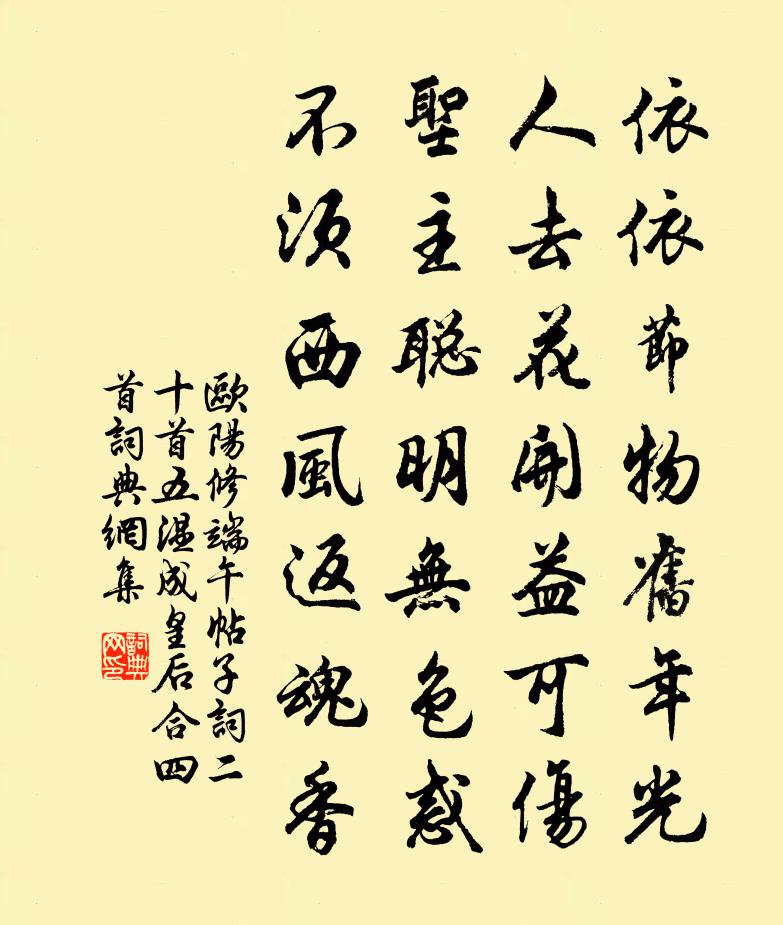 依依節物舊年光
人去花開益可傷
聖主聡明無色惑
不須西風返魂香
歐陽修端午帖子詞二
十首五溫成皇后合四
首詞典網集
詞典
网印